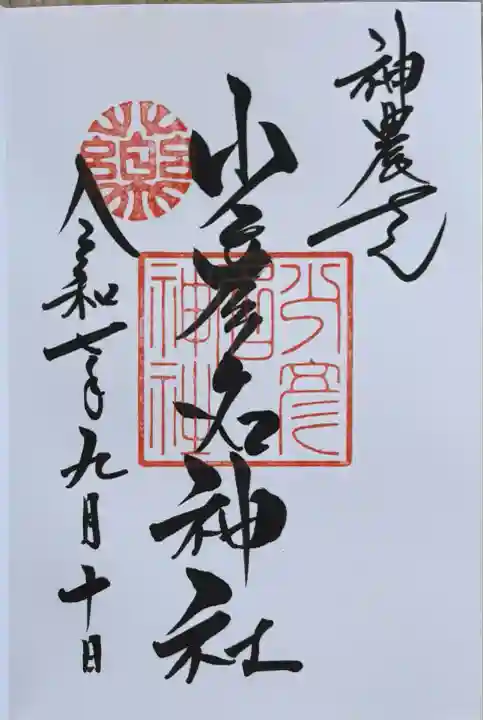 神農さん
少彦名神社
令和七年九月十日
薬
少彦名神社